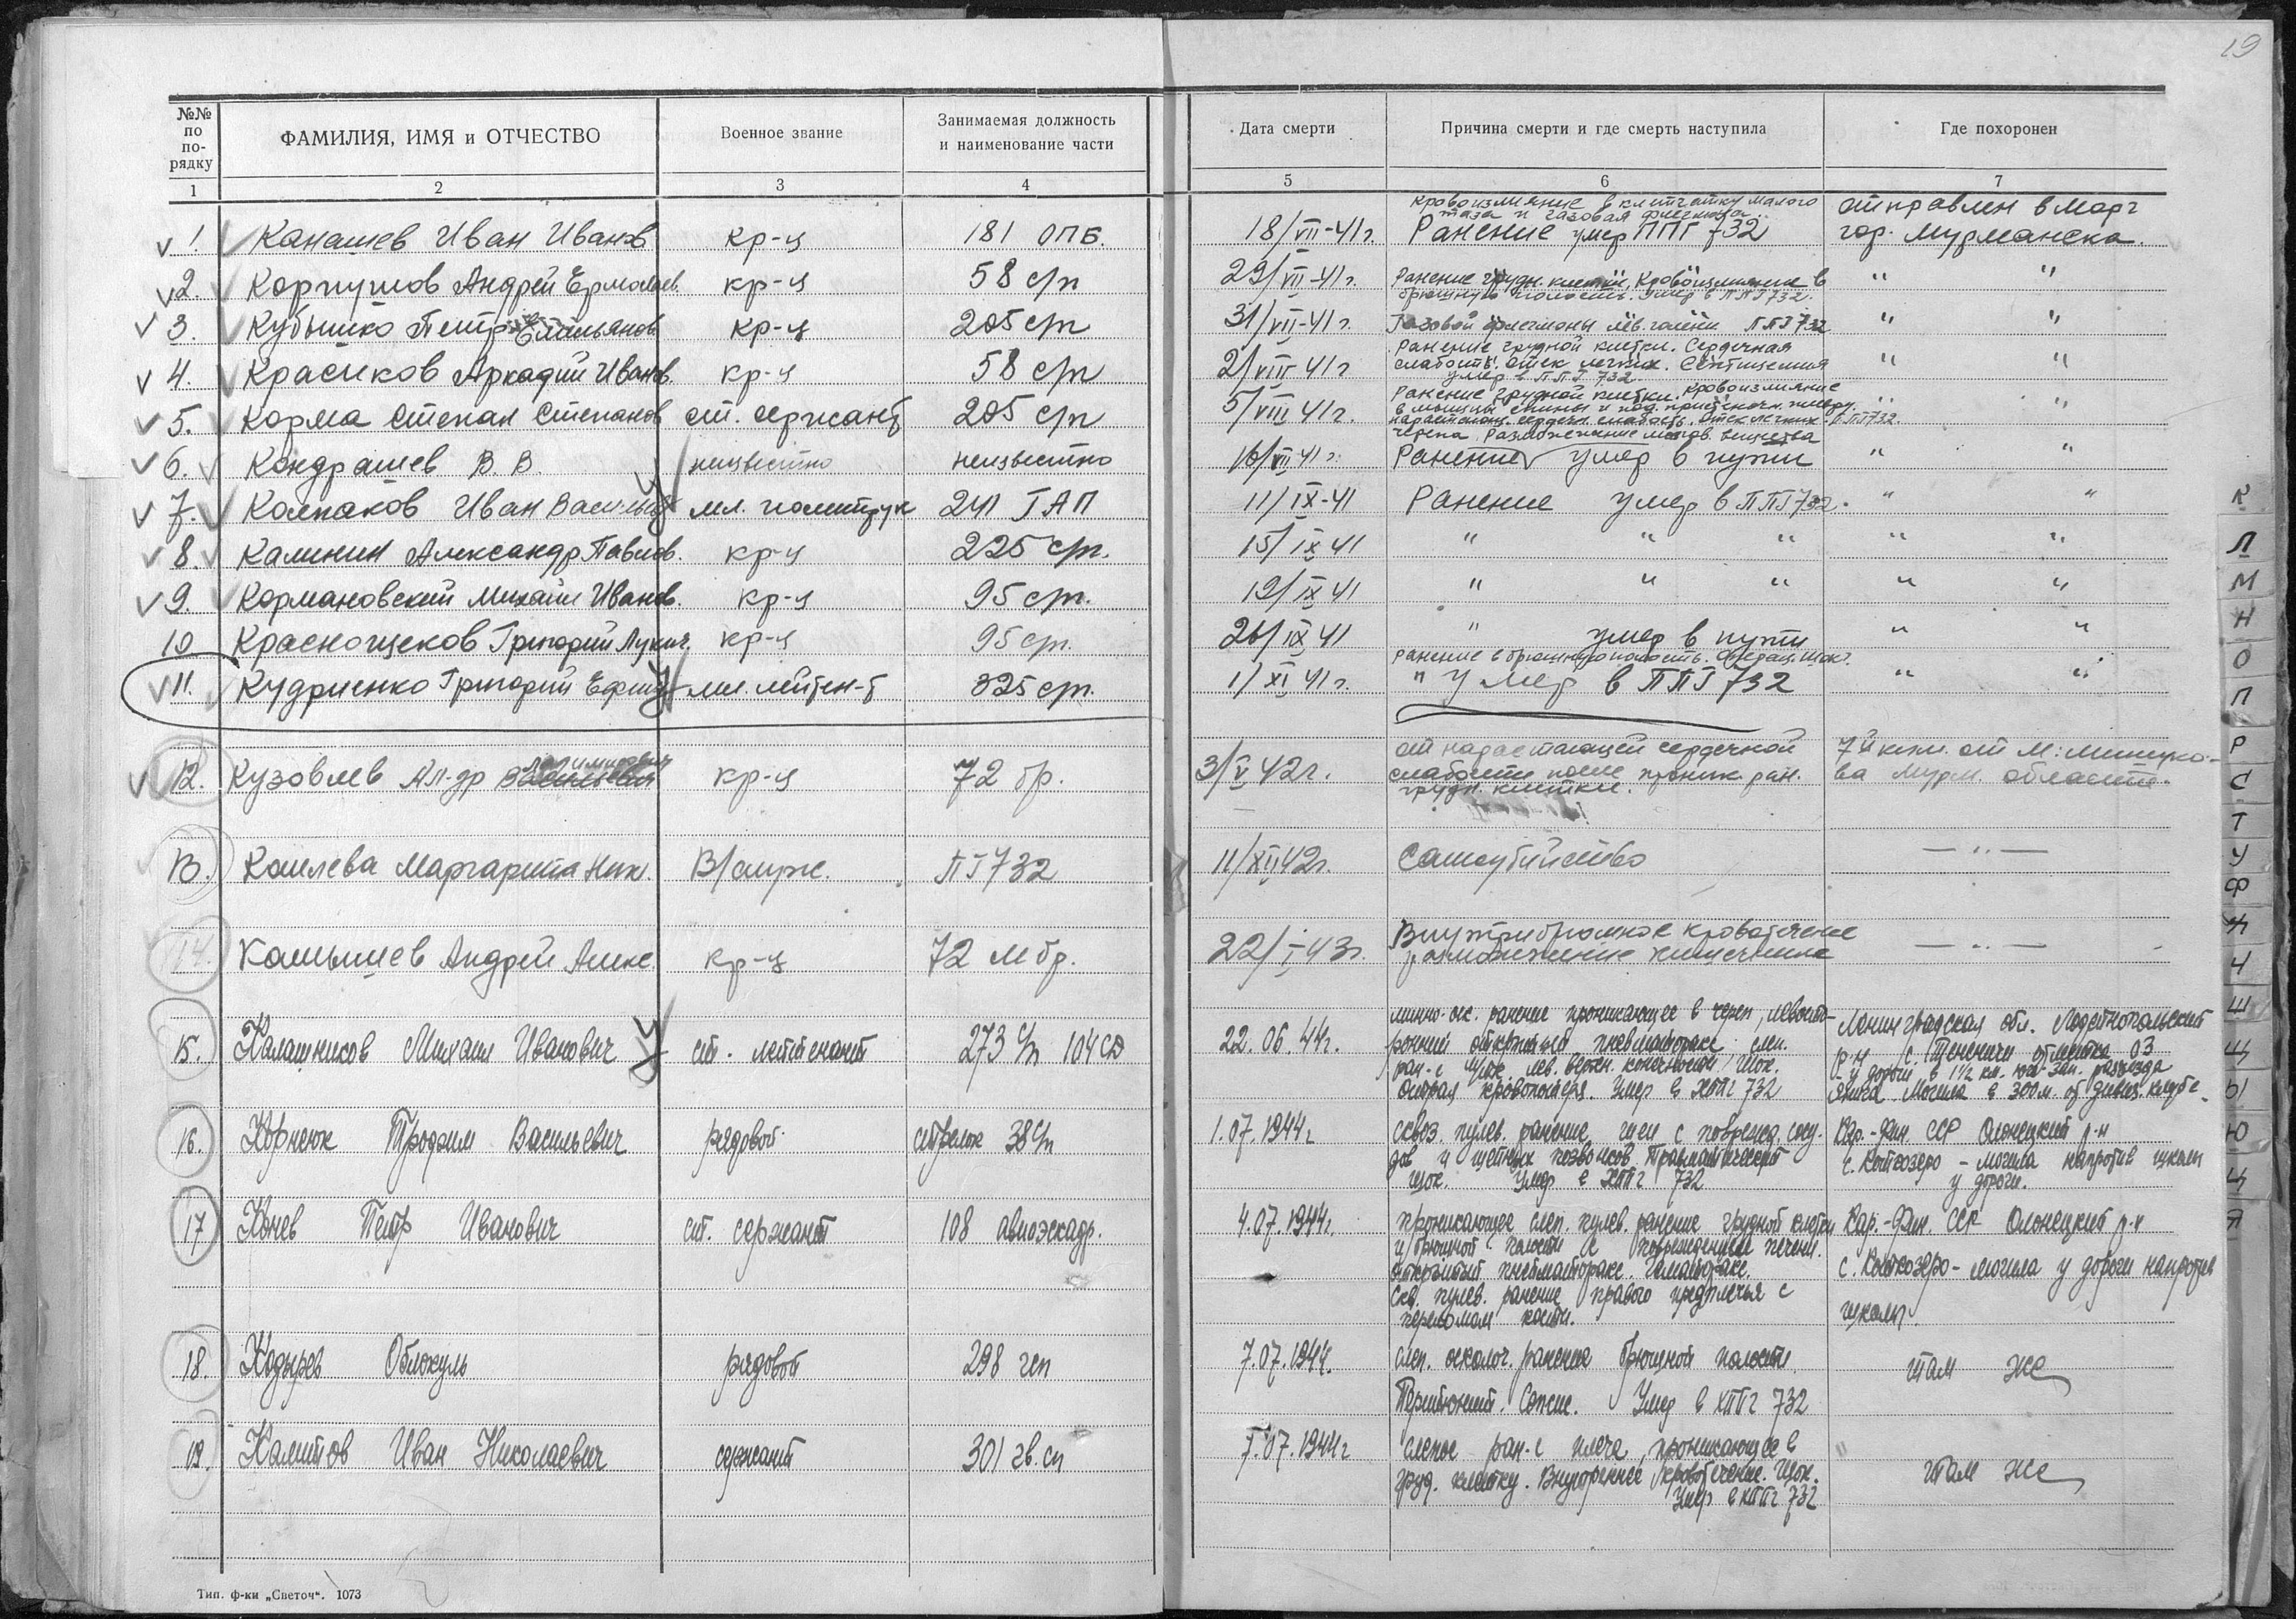 19
№№ по по- рядку
ФАМИЛИЯ, ИМЯ и ОТЧЕСТВО
Военное звание
Занимаемая должность и наименование части
Дата смерти
Причина смерти и где смерть наступила
Где похоронен
1 2 3 4 5 6 7
кровоизлияние в клетчатку малого
таза и газовая флегмона.
1. Канашев Иван Иванов кр-ц 181 ОПБ. 18/VII-41г. Ранение умер ППГ 732 отправлен в морг
гор. Мурманска.
2. Корпушов Андрей Ермолаев. кр-ц 58 с/п 29/VII-41г. Ранение грудн. клетки, Кровоизлияние в " "
брюшную полость. Умер в ППГ 732.
3. Кубышко Петр Емельянов кр-ц 205 с/п 31/VII-41г. Газовой флегмоны лев. голени ППГ 732 " "
Ранение грудной клетки. Сердечная
4. Красиков Аркадий Иванов. кр-ц 58 с/п 2/VIII 41г слабость. Отек легких. " "
умер в ППГ 732.
Ранение грудной клетки. Кровоизлияние
5. Корма Степан Степанов ст. сержант 205 с/п 5/VIII 41г. в мышцы спины и под " "
сердечн. слабость. Отек легких. ППГ 732.
черепа. Размозжение мозгов. вещества
6. Кондрашев В. В. неизвестно неизвестно 16/VII 41г. Ранение умер в пути " "
7. Колпаков Иван Васильев мл. политрук 241 ГАП 11/IX-41 Ранение умер в ППГ 732. " "
8. Калинин Александр Павлов. кр-ц 225 с/п. 15/IX 41 " " " " "
9. Кормановский Михаил Иванов. кр-ц 95 с/п. 19/IX 41 " " " " "
10 Краснощеков Григорий Лукич. кр-ц 95 с/п. 26/IX 41 " умер в пути " "
Ранение в брюшную полость. Операц. шок.
11. Кудриенко Григорий Ефим мл. лейтен-т 325 с/п. 1/XI 41г. " Умер в ППГ 732 " "
12. Кузовлев Ал-др кр-ц 72 бр. 3/V 42г. от нарастающей сердечной 7й клм. от М:
слабости после проник. ран. Мурм. области.
грудн. клетки.
13. Маргарита Ник. В/служ. ПГ 732 11/XII 42г. Самоубийство — " —
14. Камышев Андрей Алекс. кр-ц 72 м бр. 22/I 43г. Внутрибрюшное кровотечение — " —
размозжение кишечника
минно-оск. ранение проникающее в череп, левосто-
15. Калашников Михаил Иванович ст. лейтенант 273 с/п 104 СД 22.06.44г. ронний открытый пневмоторакс слеп. Ленинградская обл. Лодейнопольский
ран-е лев. верхн. конечности. Шок. р-н с. Тененичи отметка 03
Острая кровопотеря. Умер в ХППГ 732 у дороги в 1½ км. юго-зап. разъезда
Янига. Могила в 300 м. от
16. Корнеюк Трофим Васильевич рядовой стрелок 38 с/п 1.07.1944г сквоз. пулев. ранение шеи с поврежд. сосу- Кар.-Фин. ССР Олонецкий р-н
дов и шейных позвонков. Травматический с. Коткозеро – могила напротив школы
шок. Умер в ХППГ 732 у дороги.
17 Конев Петр Иванович ст. сержант 108 авиоэскадр. 4.07.1944г. проникающее слеп. пулев. ранение грудной клетки Кар.-Фин. ССР Олонецкий р-н
и брюшной полости с повреждением печени.
открытый пневмоторакс. Гемоторакс. с. Коткозеро – могила у дороги напротив
Скв. пулев. ранение правого предплечья с школы.
переломом кости.
18. Кодырев Облокуль рядовой 298 гсп 7.07.1944. слеп. осколоч. ранение брюшной полости. там же
Перитонит. Сепсис. Умер в ХППГ 732
19. Калитов Иван Николаевич сержант 301 гв. сп 7.07.1944г слепое ран-е плеча, проникающее в
груд. клетку. Внутреннее кровотечение. Шок. там же
Умер в ХППГ 732
К
Л
М
Н
О
П
Р
С
Т
У
Ф
Ч
Ш
Щ
Ы
Ю
Я
Тип. ф-ки „Светоч“. 1073